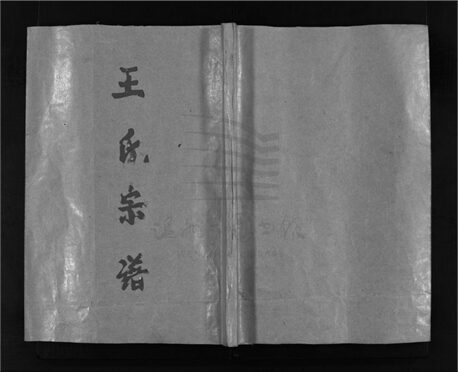 王氏宗谱